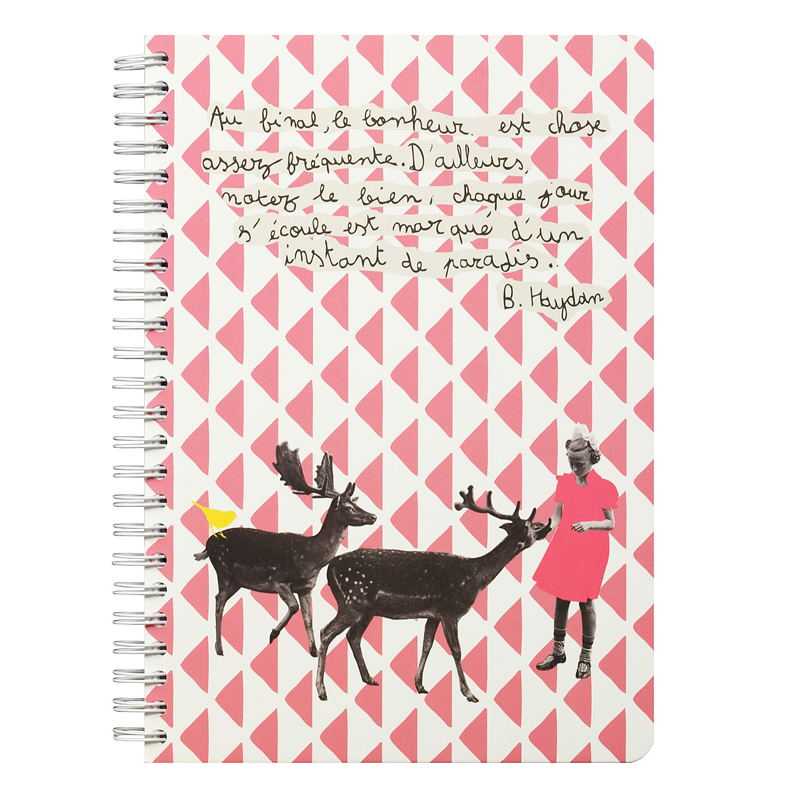 Au final, le bonheur. est chose
assez fréquente. D'ailleurs,
notez le bien, chaque jour
s'écoule est marqué d'un
instant de paradis..
B. Haydan